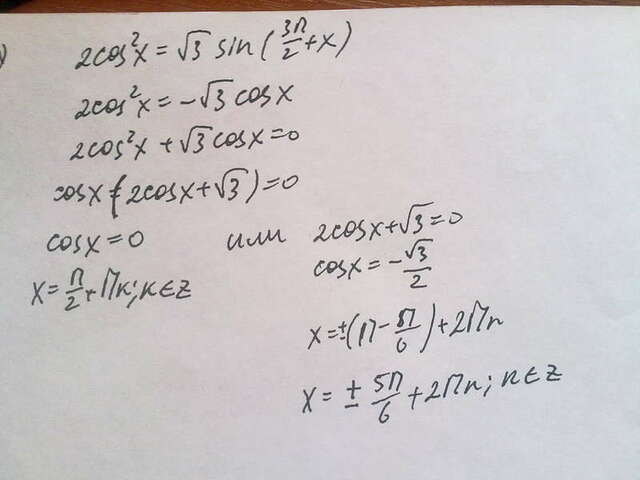 )
2cos²x = √3 sin(3π/2 + x)
2cos²x = -√3 cosx
2cos²x + √3 cosx = 0
cosx (2cosx + √3) = 0
cosx = 0 или 2cosx + √3 = 0
cosx = -√3/2
x = π/2 + πк; к∈Z
x = ±(π - π/6) + 2πn
x = ± 5π/6 + 2πn; n∈Z